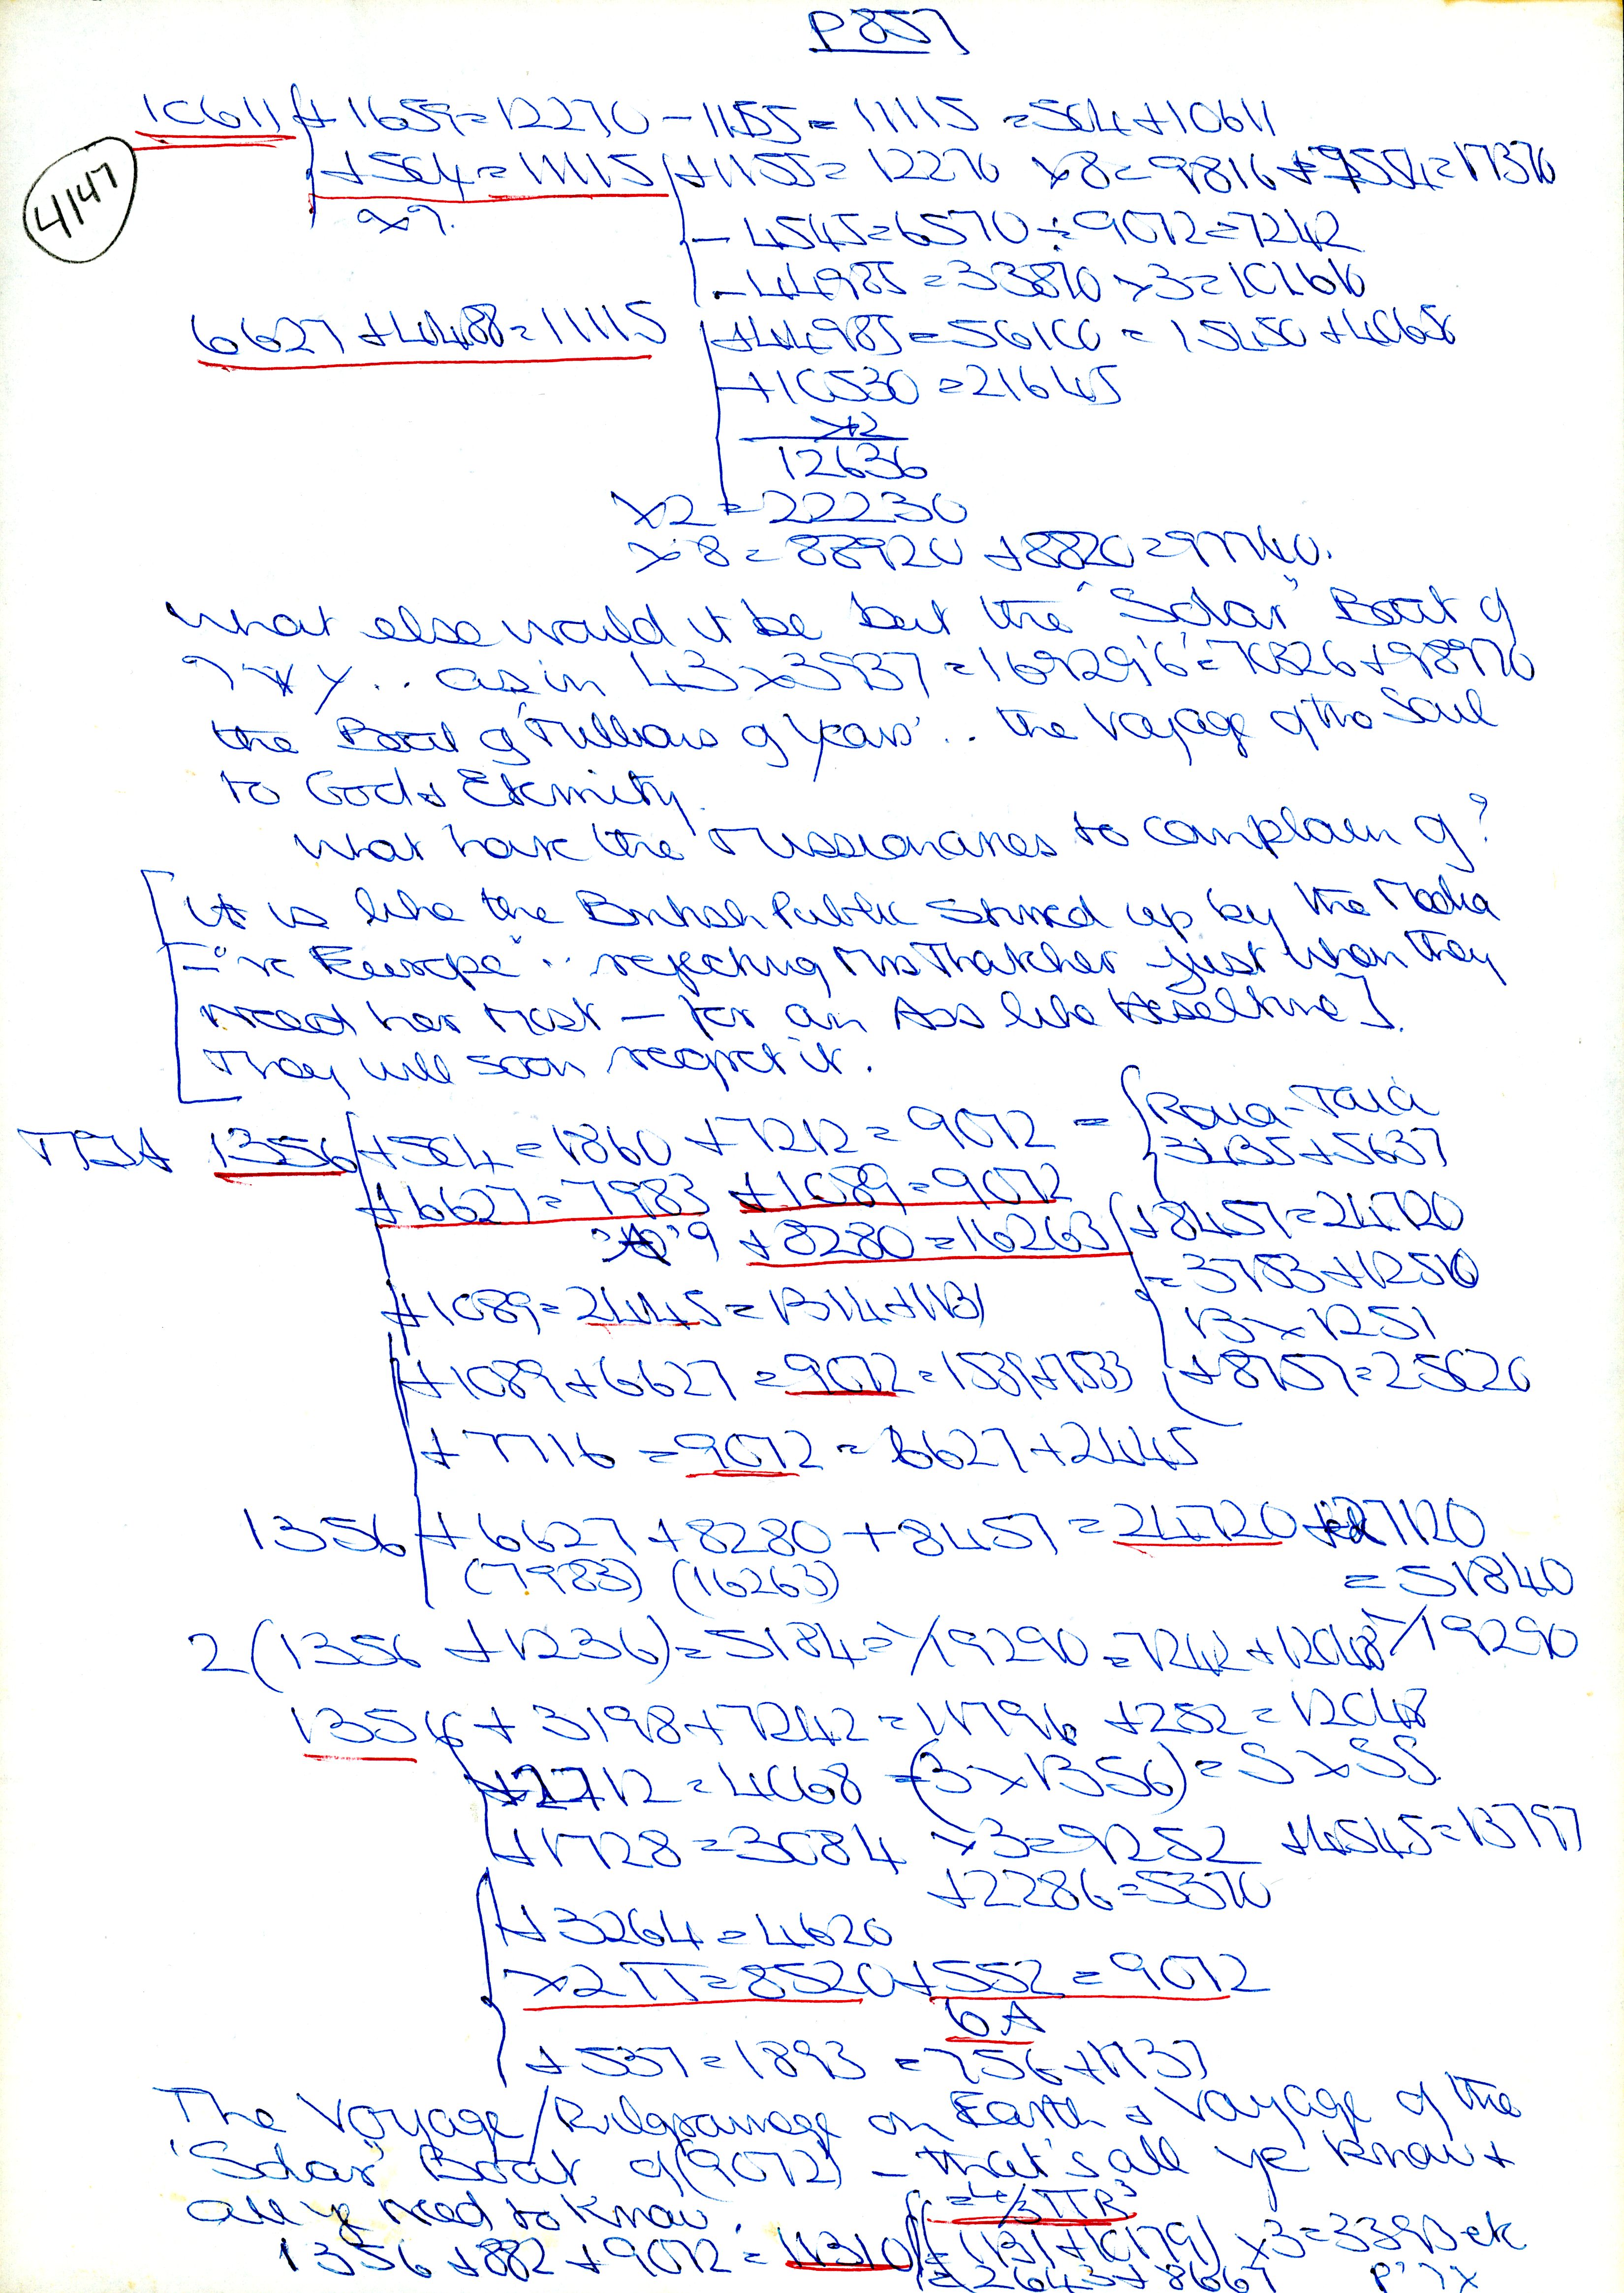 P857
10611 + 1659 = 12270 - 1155 = 11115 = 504 + 10611
4147
+ 504 = 11115 + 1155 = 12270 x 8 = 9816 + 7554 = 17370
x 9.
- 4545 = 6570 ÷ 9072 = 7242
- 44985 = 33870 x 3 = 10161
6627 + 4488 = 11115
+ 44985 = 56100 = 15450 + 40650
+ 10530 = 21645
12636
x 2 = 22230
x 8 = 88920 + 8820 = 97740.
What else would it be but the "Solar" Boat of
as in 43 x 3937 = 169291'6' = 70326 + 98970
the Boat of 'Millions of Years' .. the Voyage of the Soul
to God & Eternity.
What have the Missionaries to complain of?
[It is like the British Public stirred up by the Media
- "re Europe" .. rejecting Mrs Thatcher just when they
Need her Most - for an Ass like Heseltine].
They will soon regret it.
1356 + 504 = 1860 + 7212 = 9072 =
3435 + 5637
+ 6627 = 7983 + 1089 = 9072
+ 8280 = 16263 + 8457 = 24720
= 3753 + 12510
+ 1089 = 2445 = 1314 + 1131
13 x 1251
+ 1089 + 6627 = 9072 = 1539 + 7533
+ 8757 = 25020
+ 7716 = 9072 = 6627 + 2445
1356 + 6627 + 8280 + 8457 = 24720 + 27120
(7983) (16263)
= 51840
2(1356 + 1236) = 5184 = 19290 = 7242 + 12048 19290
1356 + 3198 + 7242 = 11796 + 252 = 12048
+ 2712 = 4068 = (3 x 1356) = S x SS.
+ 1728 = 3084 x 3 = 9252 + 4545 = 13797
+ 2286 = 5370
+ 3264 = 4620
x 2π = 8520 + 552 = 9072
6A
+ 537 = 1893 = 756 + 1137
The Voyage/Pilgramage on Earth & Voyage of the
'Solar" Boat of (9072) - that's all ye know +
all ye need to know.
= 4/3 πR³
1356 + 882 + 9072 = 11310 = (1131 + 10179) x 3 = 33930 etc
= 2643 + 8667